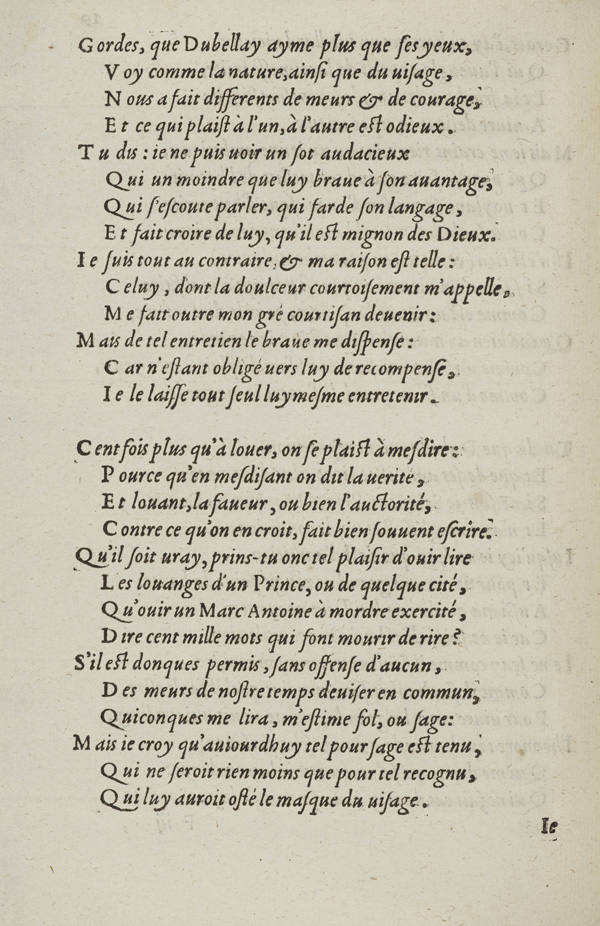 Gordes, que Dubellay ayme plus que ſes yeux,
Voy comme la nature, ainſi que du uiſage,
Nous a fait differents de meurs & de courage,
Et ce qui plaiſt à l'un, à l'autre eſt odieux.
Tu dis : ie ne puis uoir un ſot audacieux
Qui un moindre que luy braue à ſon auantage,
Qui ſ'eſcoute parler, qui farde ſon langage,
Et fait croire de luy, qu'il eſt mignon des Dieux.
Ie ſuis tout au contraire, & ma raiſon eſt telle :
Celuy, dont la doulceur courtoiſement m'appelle,
Me fait outre mon gré courtiſan deuenir :
Mais de tel entretien le braue me diſpenſe :
Car n'eſtant obligé uers luy de recompenſe,
Ie le laiſſe tout ſeul luymeſme entretenir.
Cent fois plus qu'à louer, on ſe plaiſt à meſdire :
Pource qu'en meſdiſant on dit la uerite,
Et louant, la faueur, ou bien l'auctorité,
Contre ce qu'on en croit, fait bien ſouuent eſcrire.
Qu'il ſoit uray, prins-tu onc tel plaiſir d'ouir lire
Les louanges d'un Prince, ou de quelque cité,
Qu'ouir un Marc Antoine à mordre exercité,
Dire cent mille mots qui font mourir de rire ?
S'il eſt donques permis, ſans offenſe d'aucun,
Des meurs de noſtre temps deuiſer en commun,
Quiconques me lira, m'eſtime fol, ou ſage :
Mais ie croy qu'auiourdhuy tel pour ſage eſt tenu,
Qui ne ſeroit rien moins que pour tel recognu,
Qui luy auroit oſté le maſque du uiſage.
Ie